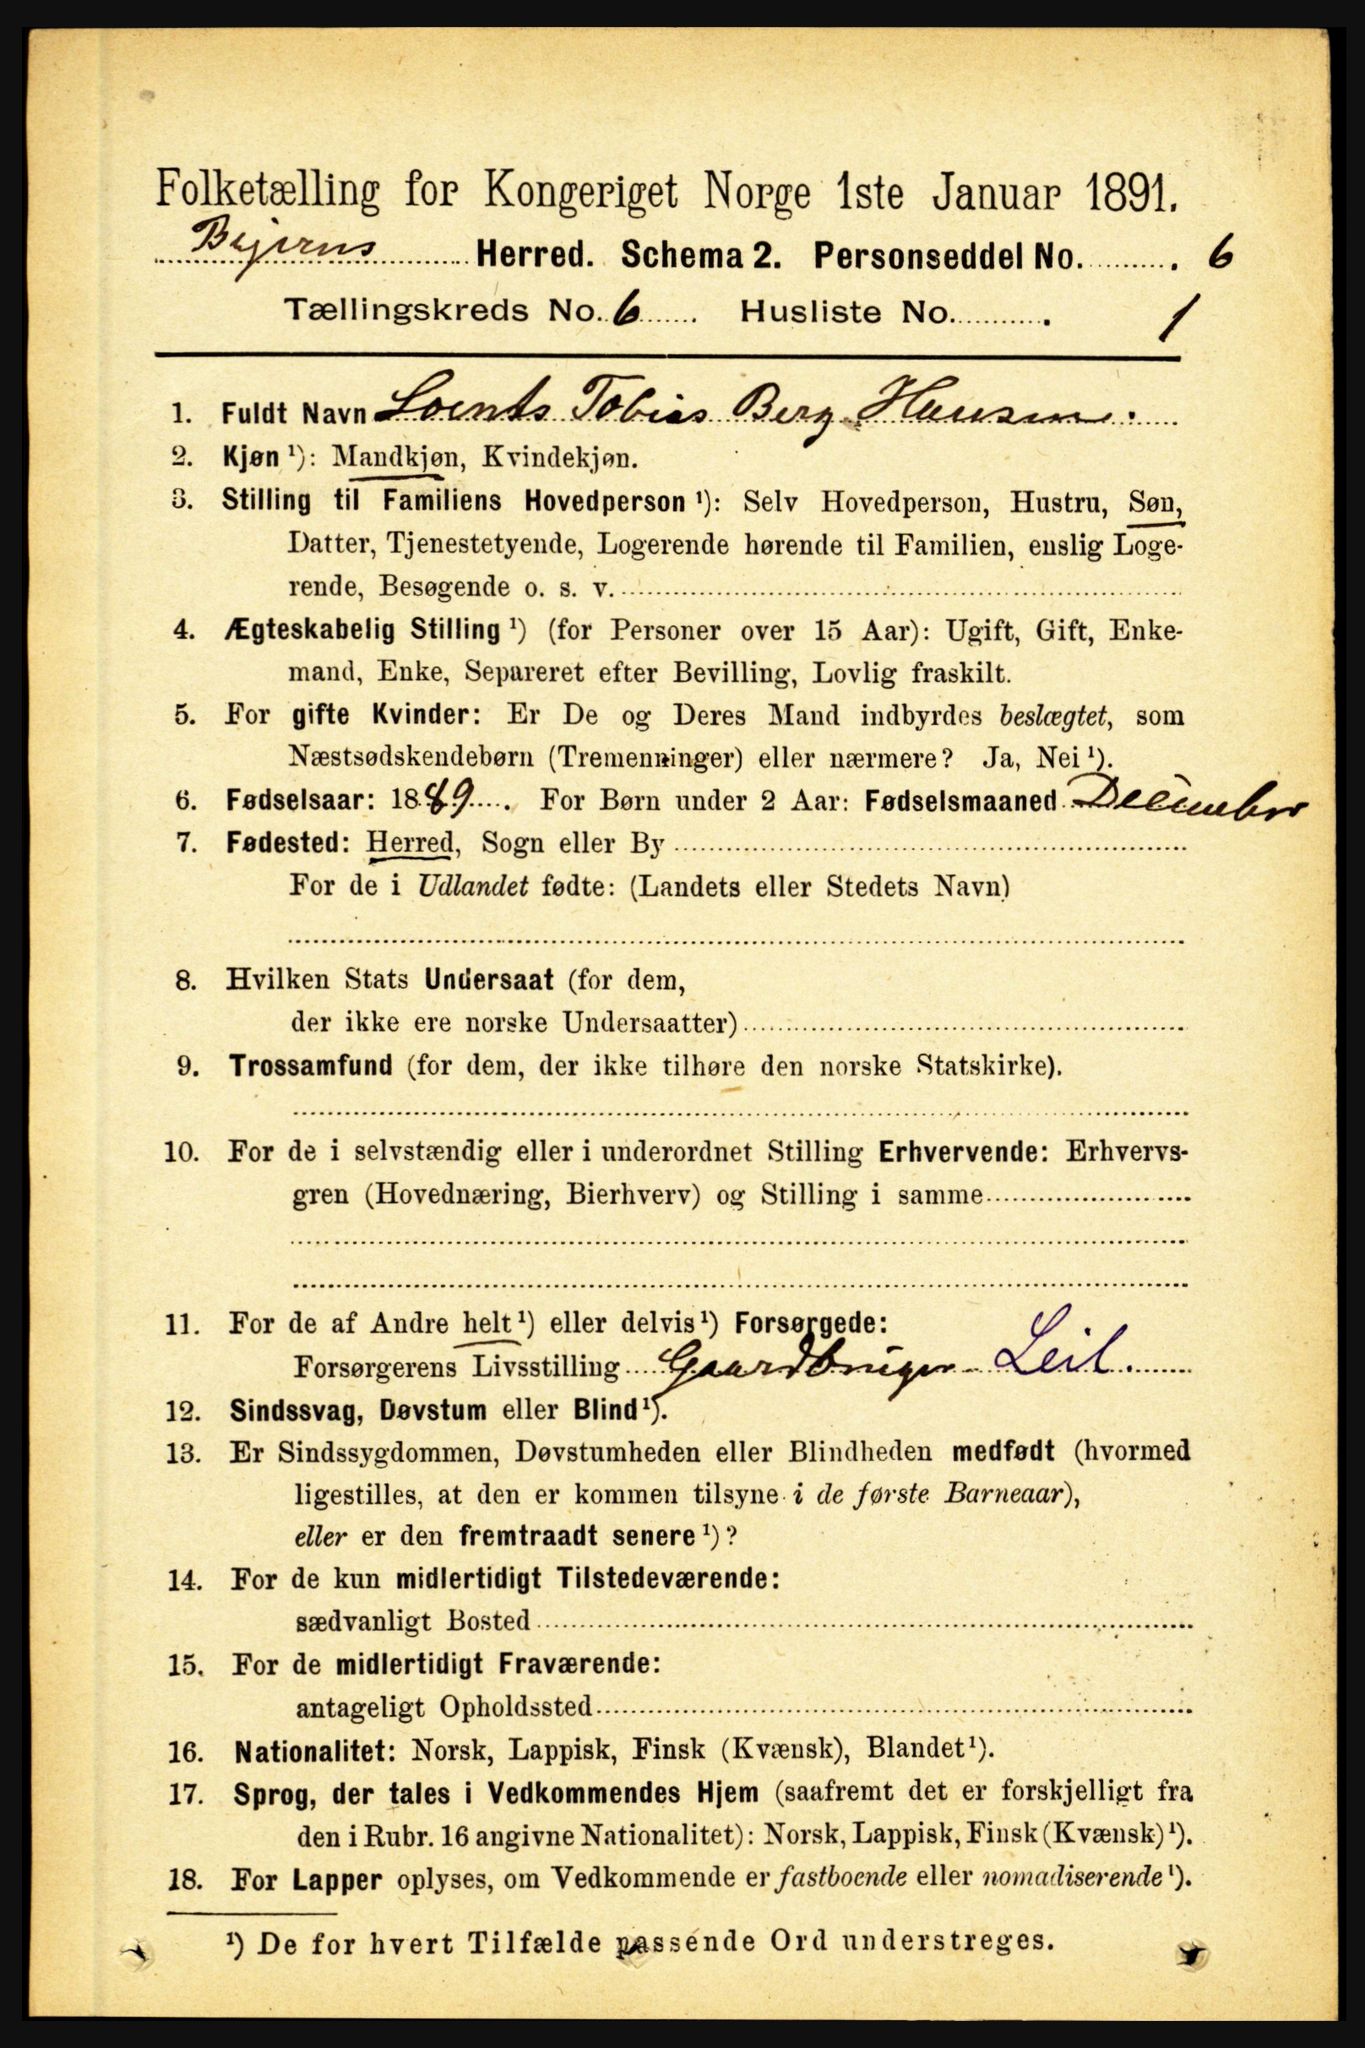 Folketælling for Kongeriget Norge 1ste Januar 1891.
Bejerns Herred. Schema 2. Personseddel No. 6
Tællingskreds No. 6 Husliste No. 1
1. Fuldt Navn Loents Tobias Berg Hansen.
2. Kjøn ¹): Mandkjøn, Kvindekjøn.
3. Stilling til Familiens Hovedperson ¹): Selv Hovedperson, Hustru, Søn,
Datter, Tjenestetyende, Logerende hørende til Familien, enslig Loge-
rende, Besøgende o. s. v.
4. Ægteskabelig Stilling ¹) (for Personer over 15 Aar): Ugift, Gift, Enke-
mand, Enke, Separeret efter Bevilling, Lovlig fraskilt.
5. For gifte Kvinder: Er De og Deres Mand indbyrdes beslægtet, som
Næstsødskendebørn (Tremenninger) eller nærmere? Ja, Nei ¹).
6. Fødselsaar: 1889. For Børn under 2 Aar: Fødselsmaaned December
7. Fødested: Herred, Sogn eller By
For de i Udlandet fødte: (Landets eller Stedets Navn)
8. Hvilken Stats Undersaat (for dem,
der ikke ere norske Undersaatter)
9. Trossamfund (for dem, der ikke tilhøre den norske Statskirke).
10. For de i selvstændig eller i underordnet Stilling Erhvervende: Erhvervs-
gren (Hovednæring, Bierhverv) og Stilling i samme
11. For de af Andre helt ¹) eller delvis ¹) Forsørgede:
Forsørgerens Livsstilling Gaardbruger Leil.
12. Sindssvag, Døvstum eller Blind ¹).
13. Er Sindssygdommen, Døvstumheden eller Blindheden medfødt (hvormed
ligestilles, at den er kommen tilsyne i de første Barneaar),
eller er den fremtraadt senere ¹)?
14. For de kun midlertidigt Tilstedeværende:
sædvanligt Bosted
15. For de midlertidigt Fraværende:
antageligt Opholdssted
16. Nationalitet: Norsk, Lappisk, Finsk (Kvænsk), Blandet ¹).
17. Sprog, der tales i Vedkommendes Hjem (saafremt det er forskjelligt fra
den i Rubr. 16 angivne Nationalitet): Norsk, Lappisk, Finsk (Kvænsk) ¹).
18. For Lapper oplyses, om Vedkommende er fastboende eller nomadiserende ¹).
¹) De for hvert Tilfælde passende Ord understreges.